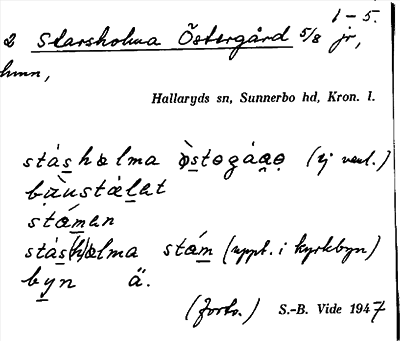 1 – 5.
2 Starsholma Östergård 5/8 jr,
hmn,
Hallaryds sn, Sunnerbo hd, Kron. l.
stásholma östogáạọ (ej vanl.)
bu̱ùnstálat
stáman
stás(h)olma stám (uppt. i kyrkbyn)
byn ä.
(forts.) S.-B. Vide 1947